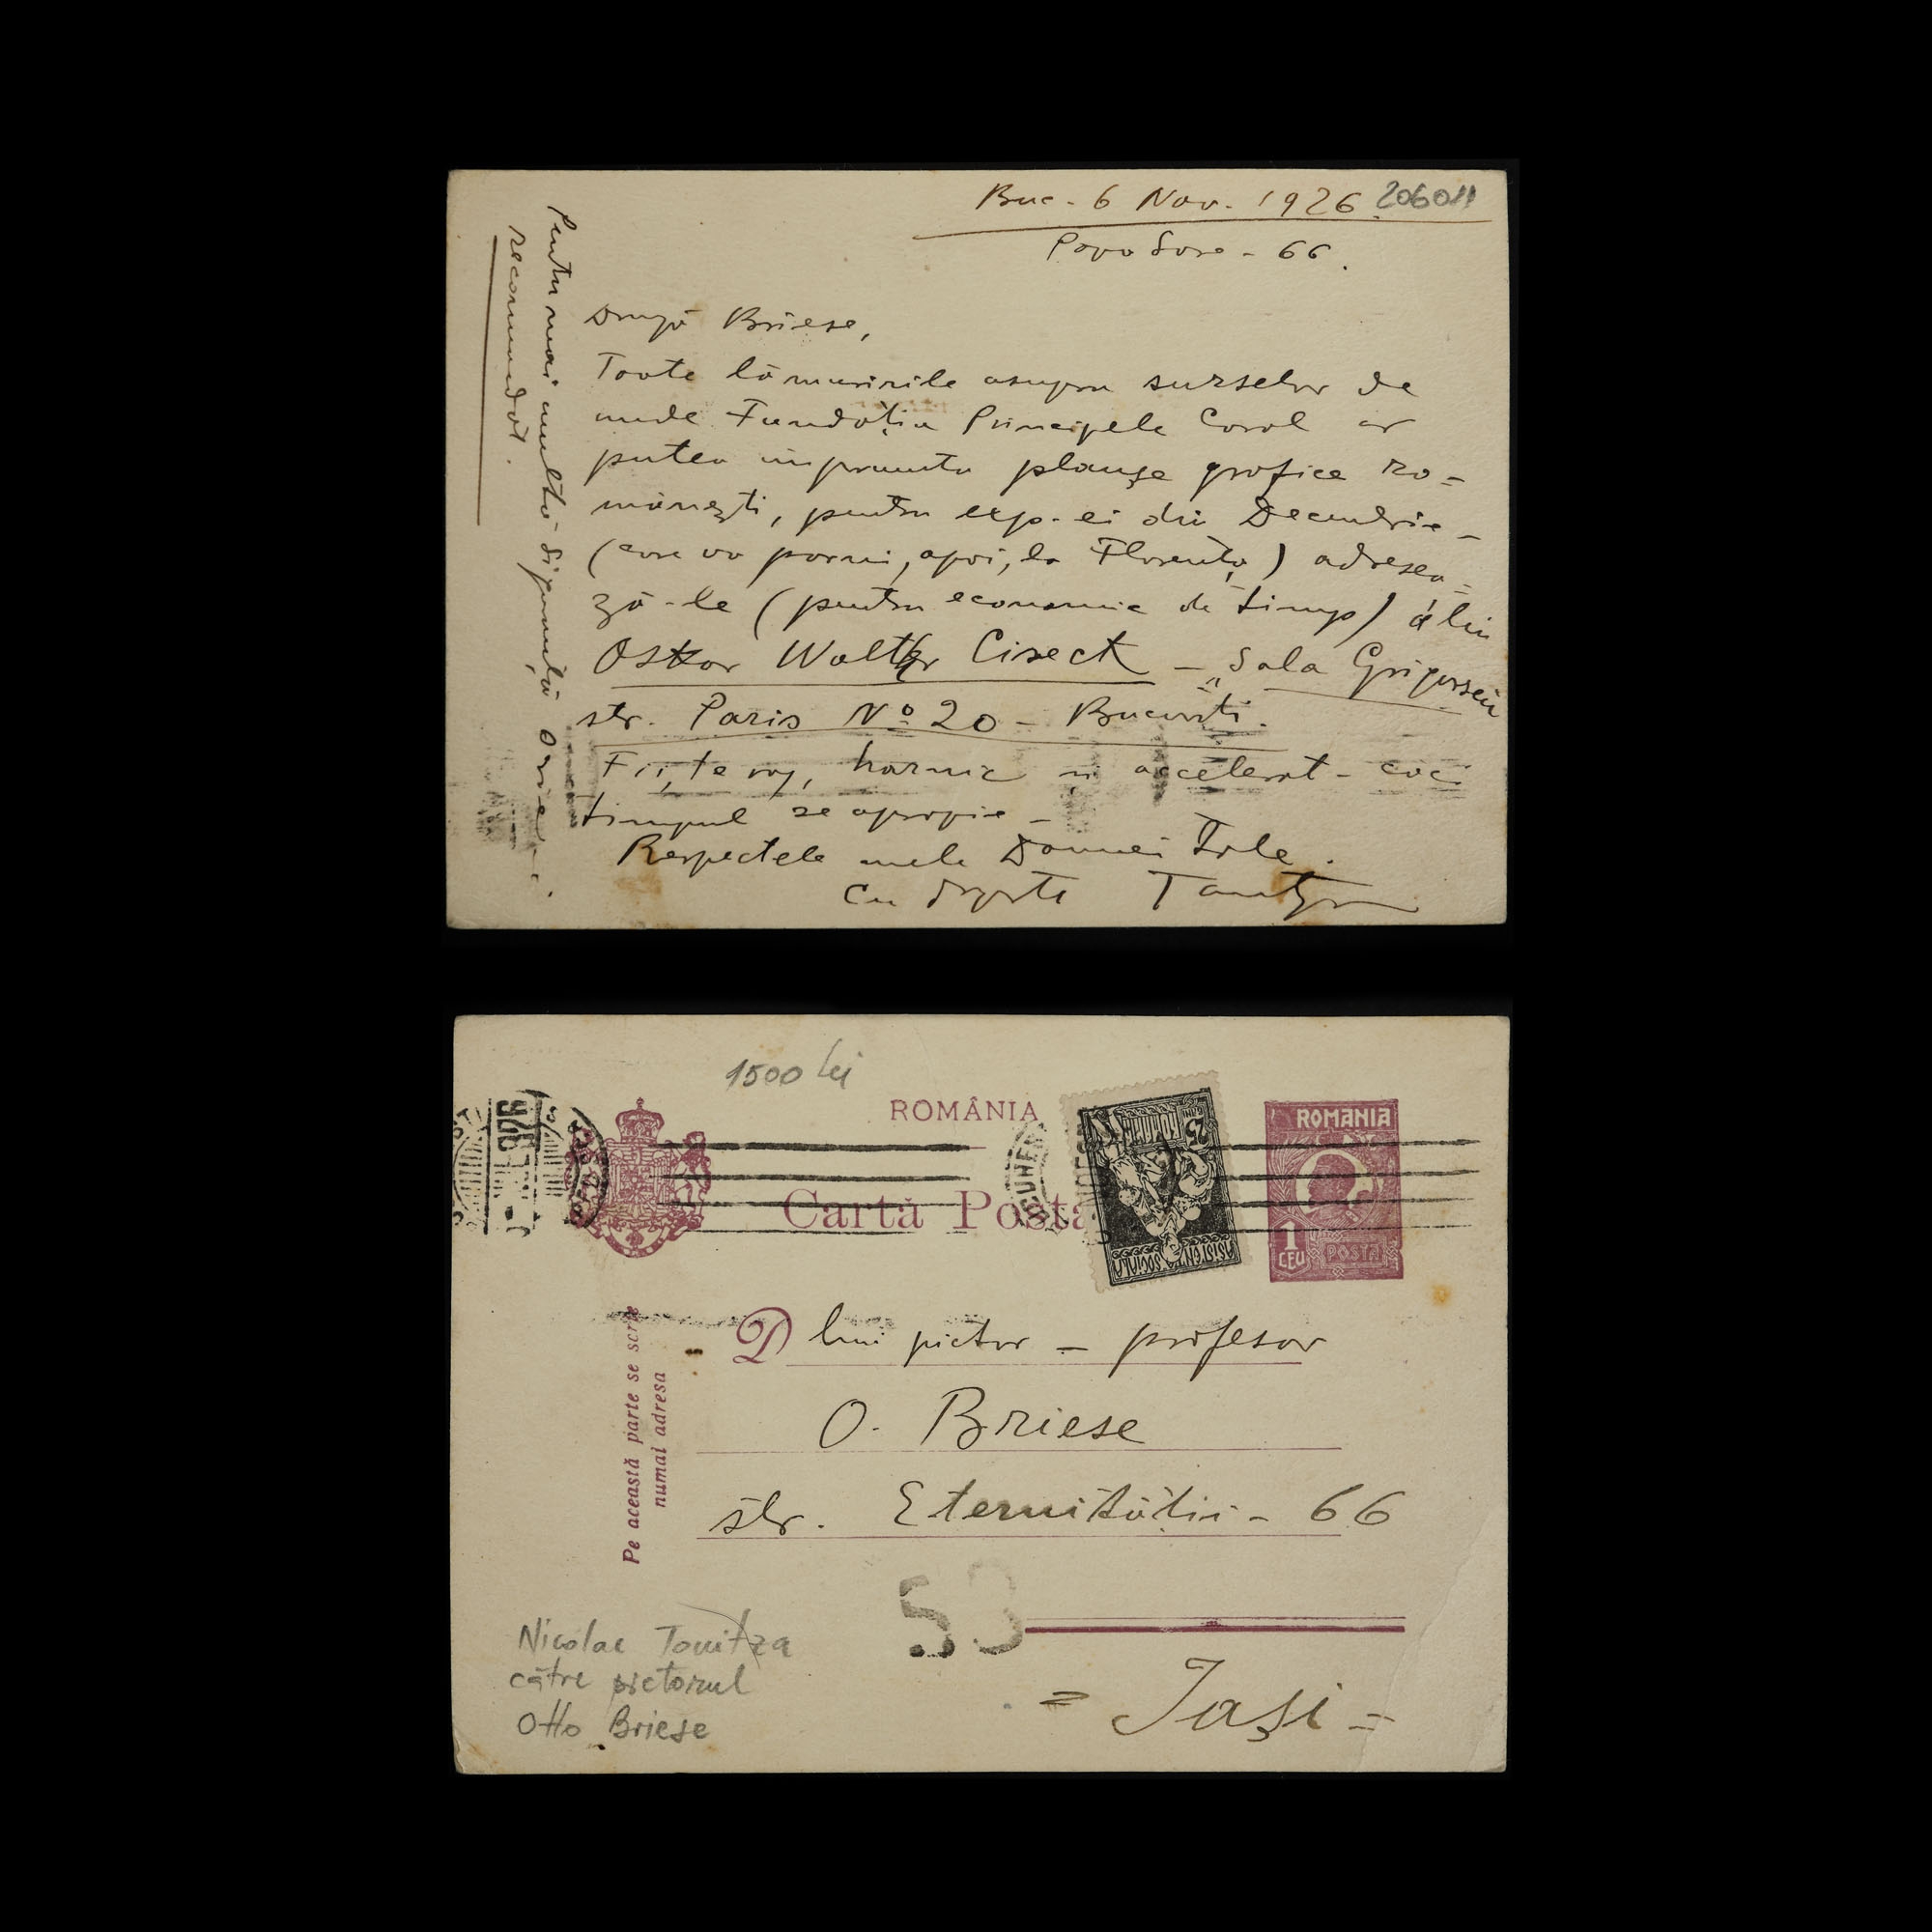 Buc. 6 Nov. 1926. 206011
Popa Soare - 66.
Dragă Briese,
Toate lămuririle asupra surselor de
unde Fundația Principele Carol ar
putea împrumuta planșe grafice ro=
mânești, pentru exp-ei din Decembrie -
(care va porni, apoi, la Florența) adresea=
ză-le (pentru economie de timp) d lui
Oskar Walter Cisek - "Sala Grigorescu
str. Paris No 20 - București.
Fii, te rog, harnic și accelerat - căci
timpul se apropie -
Respectele mele Doamnei Tale.
Cu dragoste Tonitza
Pentru mai multă siguranță
recomandat.
1500 lei
ROMÂNIA
Cartă Posta
25 BANI
ROMANIA
ASISTENȚA SOCIALĂ
ROMANIA
1 LEU
POSTA
1926
Pe această parte se scrie
numai adresa
D lui pictor - profesor
O. Briese
str. Eternității - 66
53
= Iași =
Nicolae Tonitza
către pictorul
Otto Briese